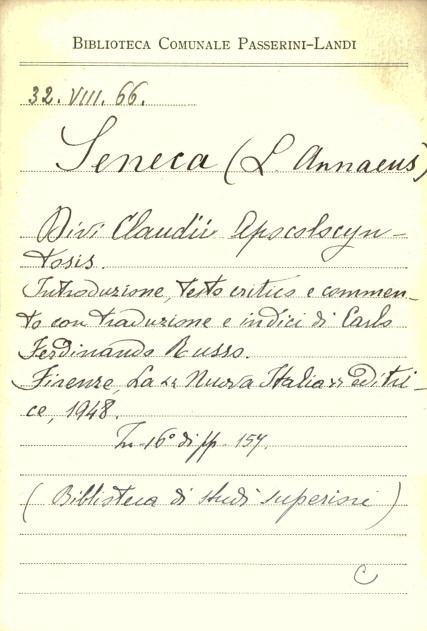 BIBLIOTECA COMUNALE PASSERINI-LANDI
32. VIII. 66.
Seneca (L. Annaeus)
Divi Claudii Apocolocyn-
tosis.
Introduzione, testo critico e commen-
to con traduzione e indici di Carlo
Ferdinando Russo.
Firenze, La << Nuova Italia >> editri-
ce, 1948.
In-16° di pp. 157.
(Biblioteca di studi superiori)
C